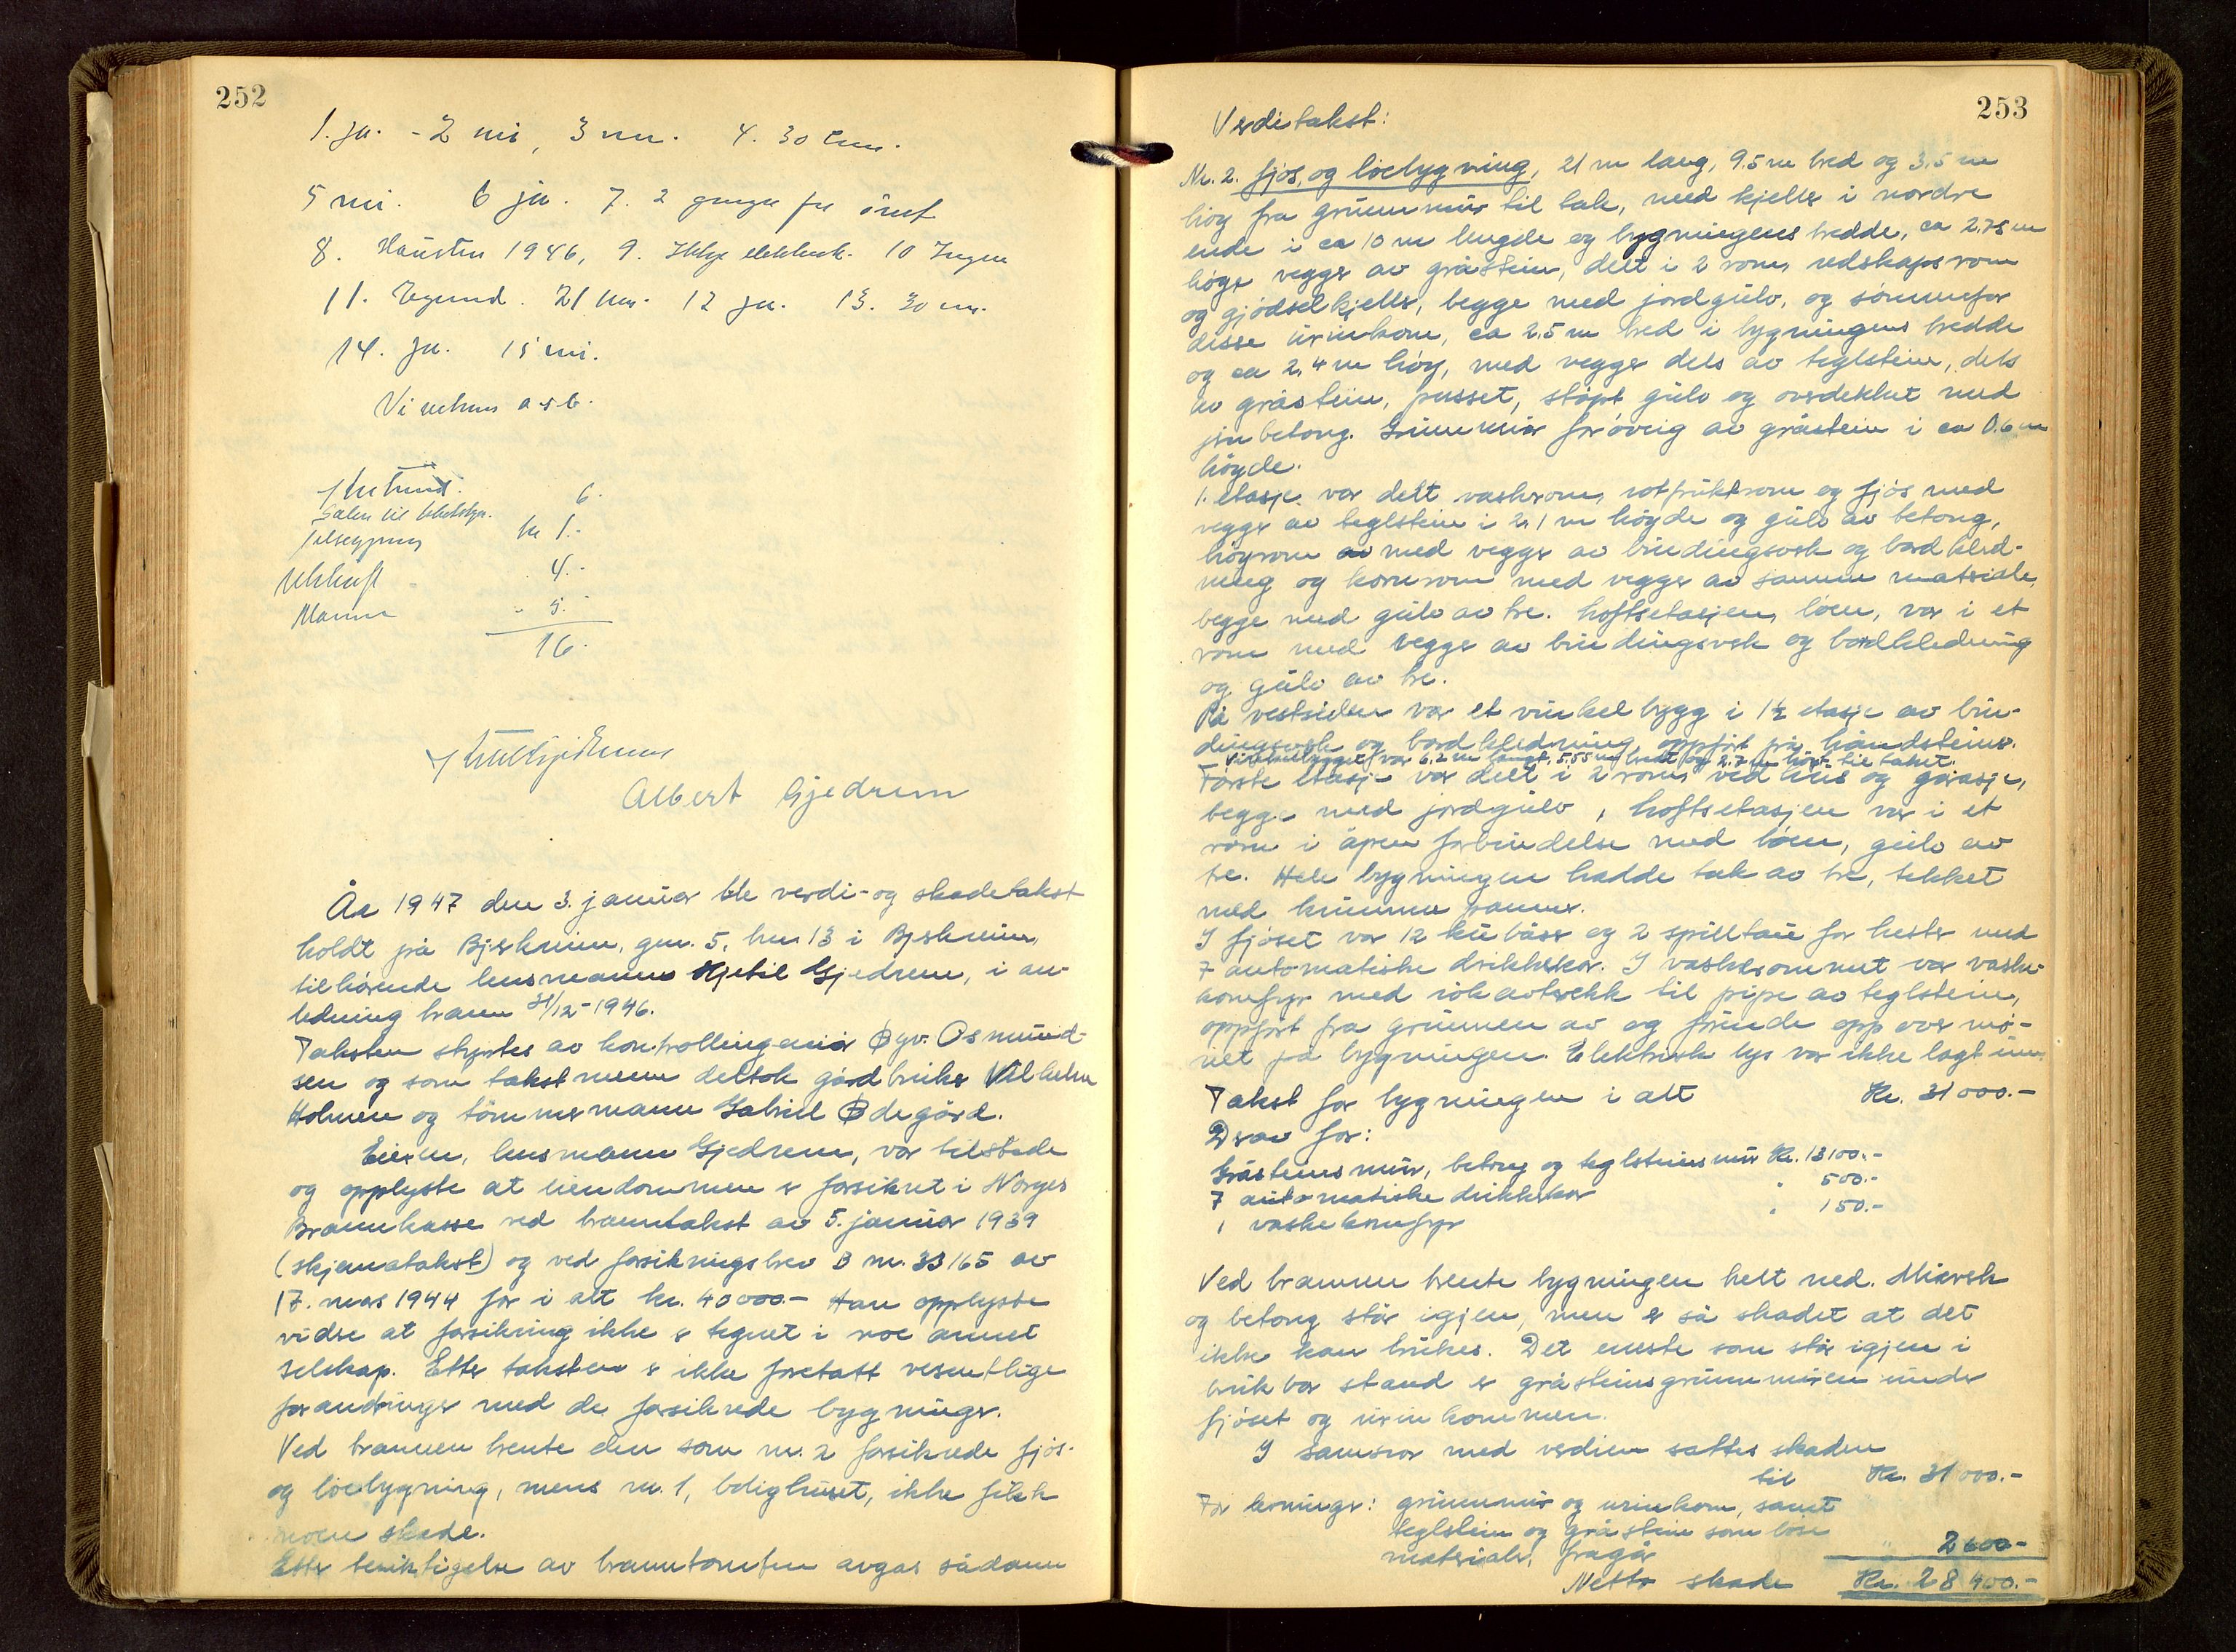 252
1. ja. - 2 nei, 3 nei. 4. 30 cm.
5 nei. 6 ja. 7. 2 ganger for året
8. Hausten 1946, 9. Ikkje elektrisk. 10 Ingen
11. Egund. 21 km. 12 ja. 13. 30 m.
14. ja. 15 nei.
6.
Kr 1.-
4.-
" 5.-
16.
Albert Gjedrem
År 1947 den 3. januar ble verdi- og skadetakst
holdt på Bjerkreim, gnr. 5, bnr. 13 i Bjerkreim,
tilhørende lensmann Kjetil Gjedrem, i an-
ledning brann 31/12-1946.
Taksten styrtes av kontrollingeniør Øyv. Osmund-
sen og som takstmenn deltok gårdbruker Vilhelm
Holmen og tømmermann Gabriel Ødegård.
Eieren, lensmann Gjedrem, var tilstede
og opplyste at eiendommen er forsikret i Norges
Brannkasse ved branntakst av 5. januar 1939
(skjematakst) og ved forsikringsbrev B nr. 33165 av
17. mars 1944 for i alt kr. 40000.- Han opplyste
videre at forsikring ikke er tegnet i noe annet
selskap. Etter taksten er ikke foretatt vesentlige
forandringer med de forsikrede bygninger.
Ved brannen brente den som nr. 2 forsikrede fjøs-
og løebygning, mens nr. 1, bolighuset, ikke fikk
noen skade.
Etter besiktigelse av branntomten avgas sådann
253
Verditakst:
Nr. 2. fjøs, og løebygning, 21 m lang, 9.5 m bred og 3.5 m
høy fra grunnmur til tak, med kjeller i nordre
ende i ca 10 m lengde og bygningens bredde, ca 2.75 m
høge vegger av gråstein, delt i 2 rom, redskapsrom
og gjødselkjeller, begge med jordgulv, og sønnenfor
disse urinkom, ca 2.5 m bred i bygningens bredde
og ca 2,4 m høy, med vegger dels av teglstein, dels
av gråstein, pusset, støpt gulv og overdekket med
jernbetong. Grunnmur forøvrig av gråstein i ca 0.6 m
høyde.
1. etasje var delt vaskerom, rotfruktrom og fjøs med
vegger av teglstein i 2,1 m høyde og gulv av betong,
høyrom av med vegger av bindingsverk og bordkled-
ning og kornrom med vegger av samme materiale,
begge med gulv av tre. Loftsetasjen, løen, var i et
rom med vegger av bindingsverk og bordkledning
og gulv av tre.
På vestsiden var et vinkelbygg i 1½ etasje av bin-
dingsverk og bordkledning, oppført på håndsteiner.
Vinkelbygget var 6.2 m langt, 5.55 m bredt og 2.7 m høgt til taket.
Første etasje var delt i 2 rom, vedhus og garasje,
begge med jordgulv, loftsetasjen var i et
rom i åpen forbindelse med løen, gulv av
tre. Hele bygningen hadde tak av tre, tekket
med krumme panner.
I fjøset var 12 kubåser og 2 spilltau for hester med
7 automatiske drikkekar. I vaskerommet var vaske-
komfyr med rökavtrekk til pipe av teglstein,
oppført fra grunnen av og førende opp over mø-
net på bygningen. Elektrisk lys var ikke lagt inn.
Takst for bygningen i alt Kr. 31000.-
Derav for:
Gråsteinsmur, betong og teglsteinsmur Kr. 13100.-
7 automatiske drikkekar " 500.-
1 vaskekomfyr " 150.-
Ved brannen brente bygningen helt ned. Murverk
og betong står igjen, men er så skadet at det
ikke kan brukes. Det eneste som står igjen i
brukbar stand er gråsteinsgrunnmuren under
fjøset og urinkommen.
I samsvar med verdien sattes skaden
til Kr. 31000.-
For levninger: grunnmur og urinkom, samt
teglstein og gråstein som løse
materialer, fragår " 2600.-
Netto skade Kr. 28400.-